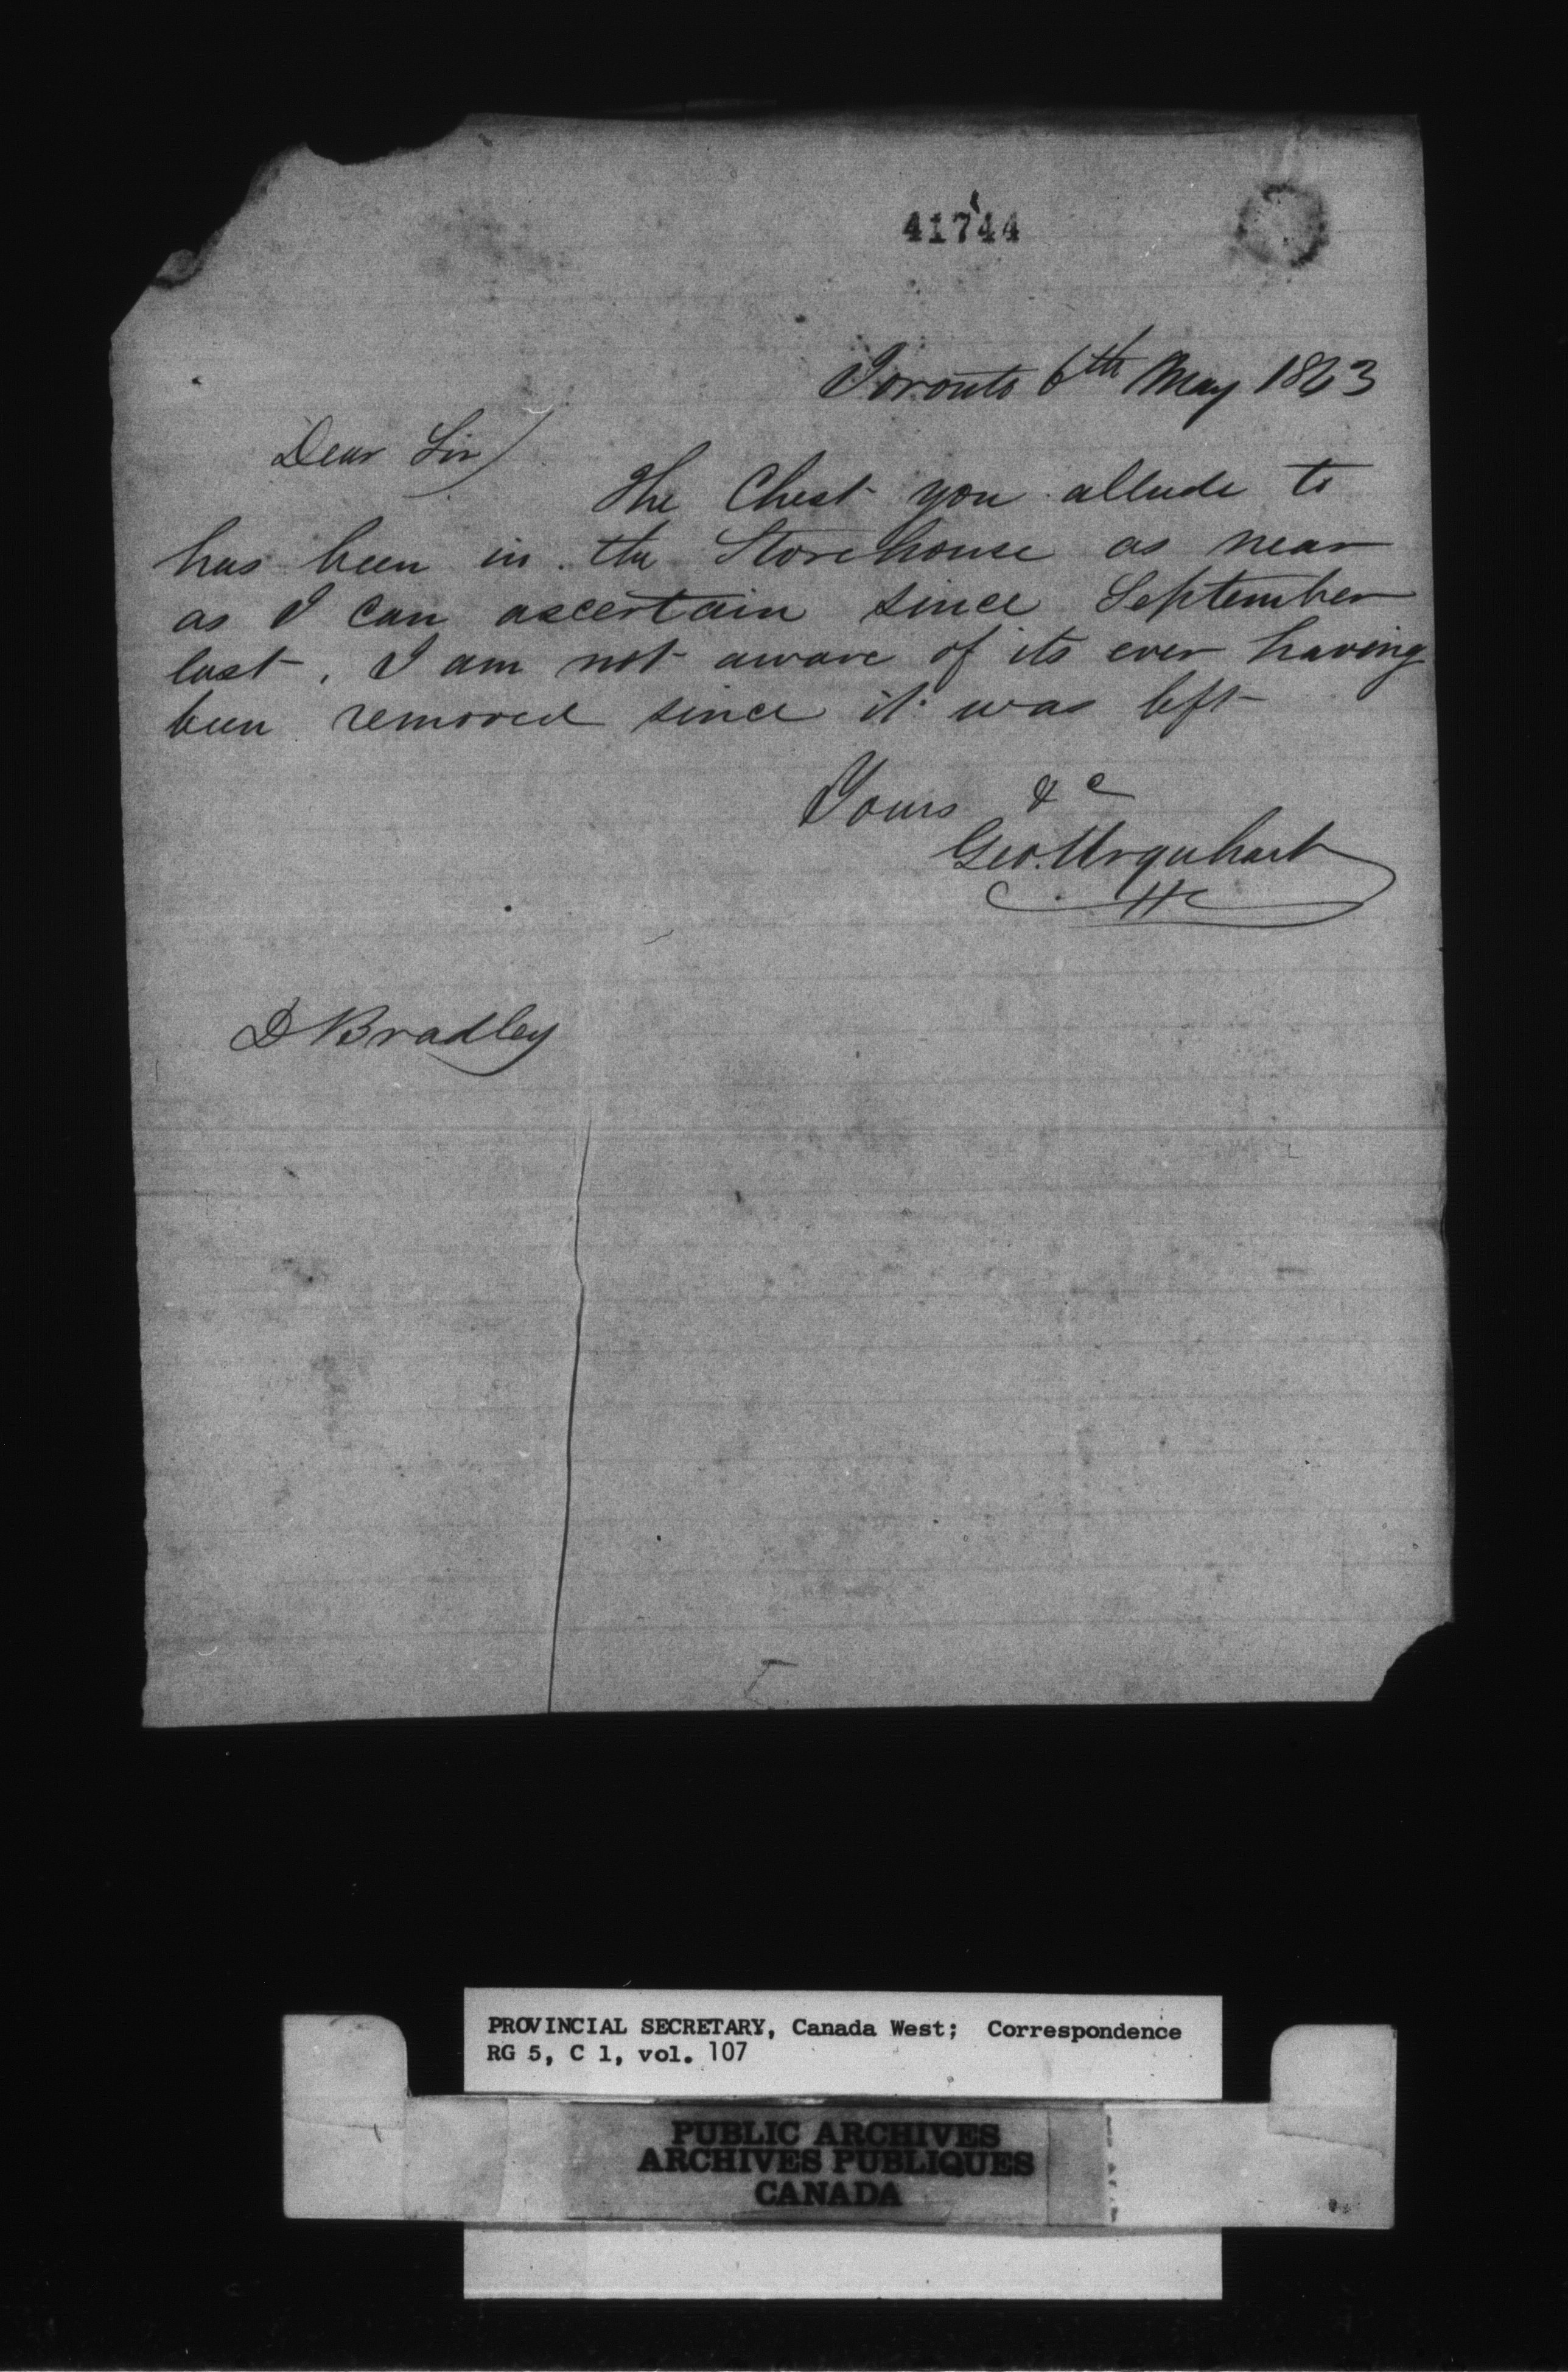 41744
Toronto 6th May 1843
Dear Sir)
The Chest you allude to
has been in the Storehouse as near
as I can ascertain since September
last. I am not aware of its ever having
been removed since it was left
Yours &c
Geo. Urquhart
D Bradley
PROVINCIAL SECRETARY, Canada West; Correspondence
RG 5, C 1, vol. 107
PUBLIC ARCHIVES
ARCHIVES PUBLIQUES
CANADA